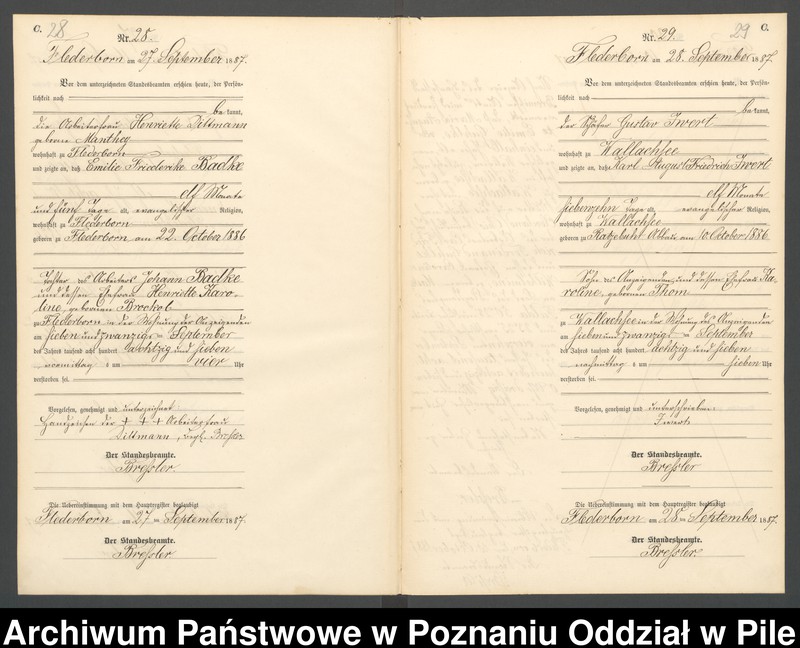 C. 28
Nr. 28.
Flederborn am 27. September 1887.
Vor dem unterzeichneten Standesbeamten erschien heute, der Persön-
lichkeit nach
bekannt,
die Arbeiterfrau Henriette Dittmann
geborne Manthey
wohnhaft zu Flederborn
und zeigte an, daß Emilie Friederike Badtke
elf Monate
und fünf Tage alt, evangelischer Religion,
wohnhaft zu Flederborn
geboren zu Flederborn am 22. October 1886
Tochter des Arbeiters Johann Badtke
und dessen Ehefrau Henriette Karo-
line, geborenen
zu Flederborn in der Wohnung der Anzeigenden
am sieben und zwanzigsten September
des Jahres tausend acht hundert achtzig und sieben
vormittag s um vier Uhr
verstorben sei.
Vorgelesen, genehmigt und unterzeichnet
Handzeichen der + + + Arbeiterfrau
Dittmann, Bressler
Der Standesbeamte.
Bressler
Die Uebereinstimmung mit dem Hauptregister beglaubigt
Flederborn am 27ten September 1887.
Der Standesbeamte.
Bressler
29 C.
Nr. 29.
Flederborn am 28. September 1887.
Vor dem unterzeichneten Standesbeamten erschien heute, der Persön-
lichkeit nach
bekannt,
der Schäfer Gustav Iwert
wohnhaft zu Wallachsee
und zeigte an, daß Karl August Friedrich Iwert
elf Monate
siebenzehn Tage alt, evangelischer Religion,
wohnhaft zu Wallachsee
geboren zu Ratzebuhr Abbau am 10. October 1886
Sohn des Anzeigenden und dessen Ehefrau Ka-
roline, geborenen Thom
zu Wallachsee in der Wohnung des Anzeigenden
am sieben und zwanzigsten September
des Jahres tausend acht hundert achtzig und sieben
nachmittag s um sieben Uhr
verstorben sei.
Vorgelesen, genehmigt und unterschrieben
Iwert
Der Standesbeamte.
Bressler
Die Uebereinstimmung mit dem Hauptregister beglaubigt
Flederborn am 28ten September 1887.
Der Standesbeamte.
Bressler.
Archiwum Państwowe w Poznaniu Oddział w Pile